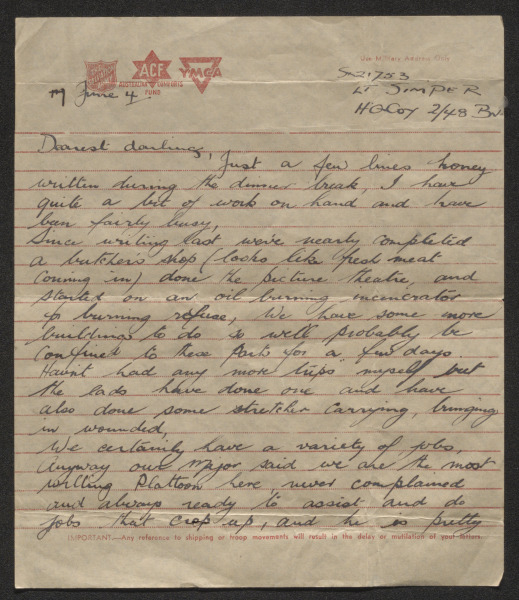 ACF
YMCA
AUSTRALIAN COMFORTS
FUND
Use Military Address Only
SX21753
Lt SIMPER
HQ Coy 2/48 Bn
17 June 4.
Dearest darling,
Just a few lines honey
written during the dinner break, I have
quite a bit of work on hand and have
been fairly busy,
Since writing last we've nearly completed
a butchers shop (looks like fresh meat
coming in) done the picture theatre, and
started on an oil burning incenerator
for burning refuse, We have some more
buildings to do so well probably be
confined to these parts for a few days.
Havnt had any more trips myself but
the lads have done one and have
also done some stretcher carrying, bringing
in wounded,
We certainly have a variety of jobs,
Anyway our Major said we are the most
willing Platoon here, never complained
and always ready to assist and do
jobs that crop up, and he is pretty
IMPORTANT.—Any reference to shipping or troop movements will result in the delay or mutilation of your letters.